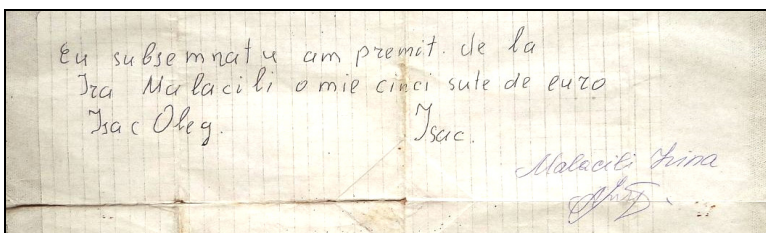 Eu subsemnatu am premit. de la
Ira Malacili o mie cinci sute de euro
Isac Oleg. Isac.
Malacili Irina